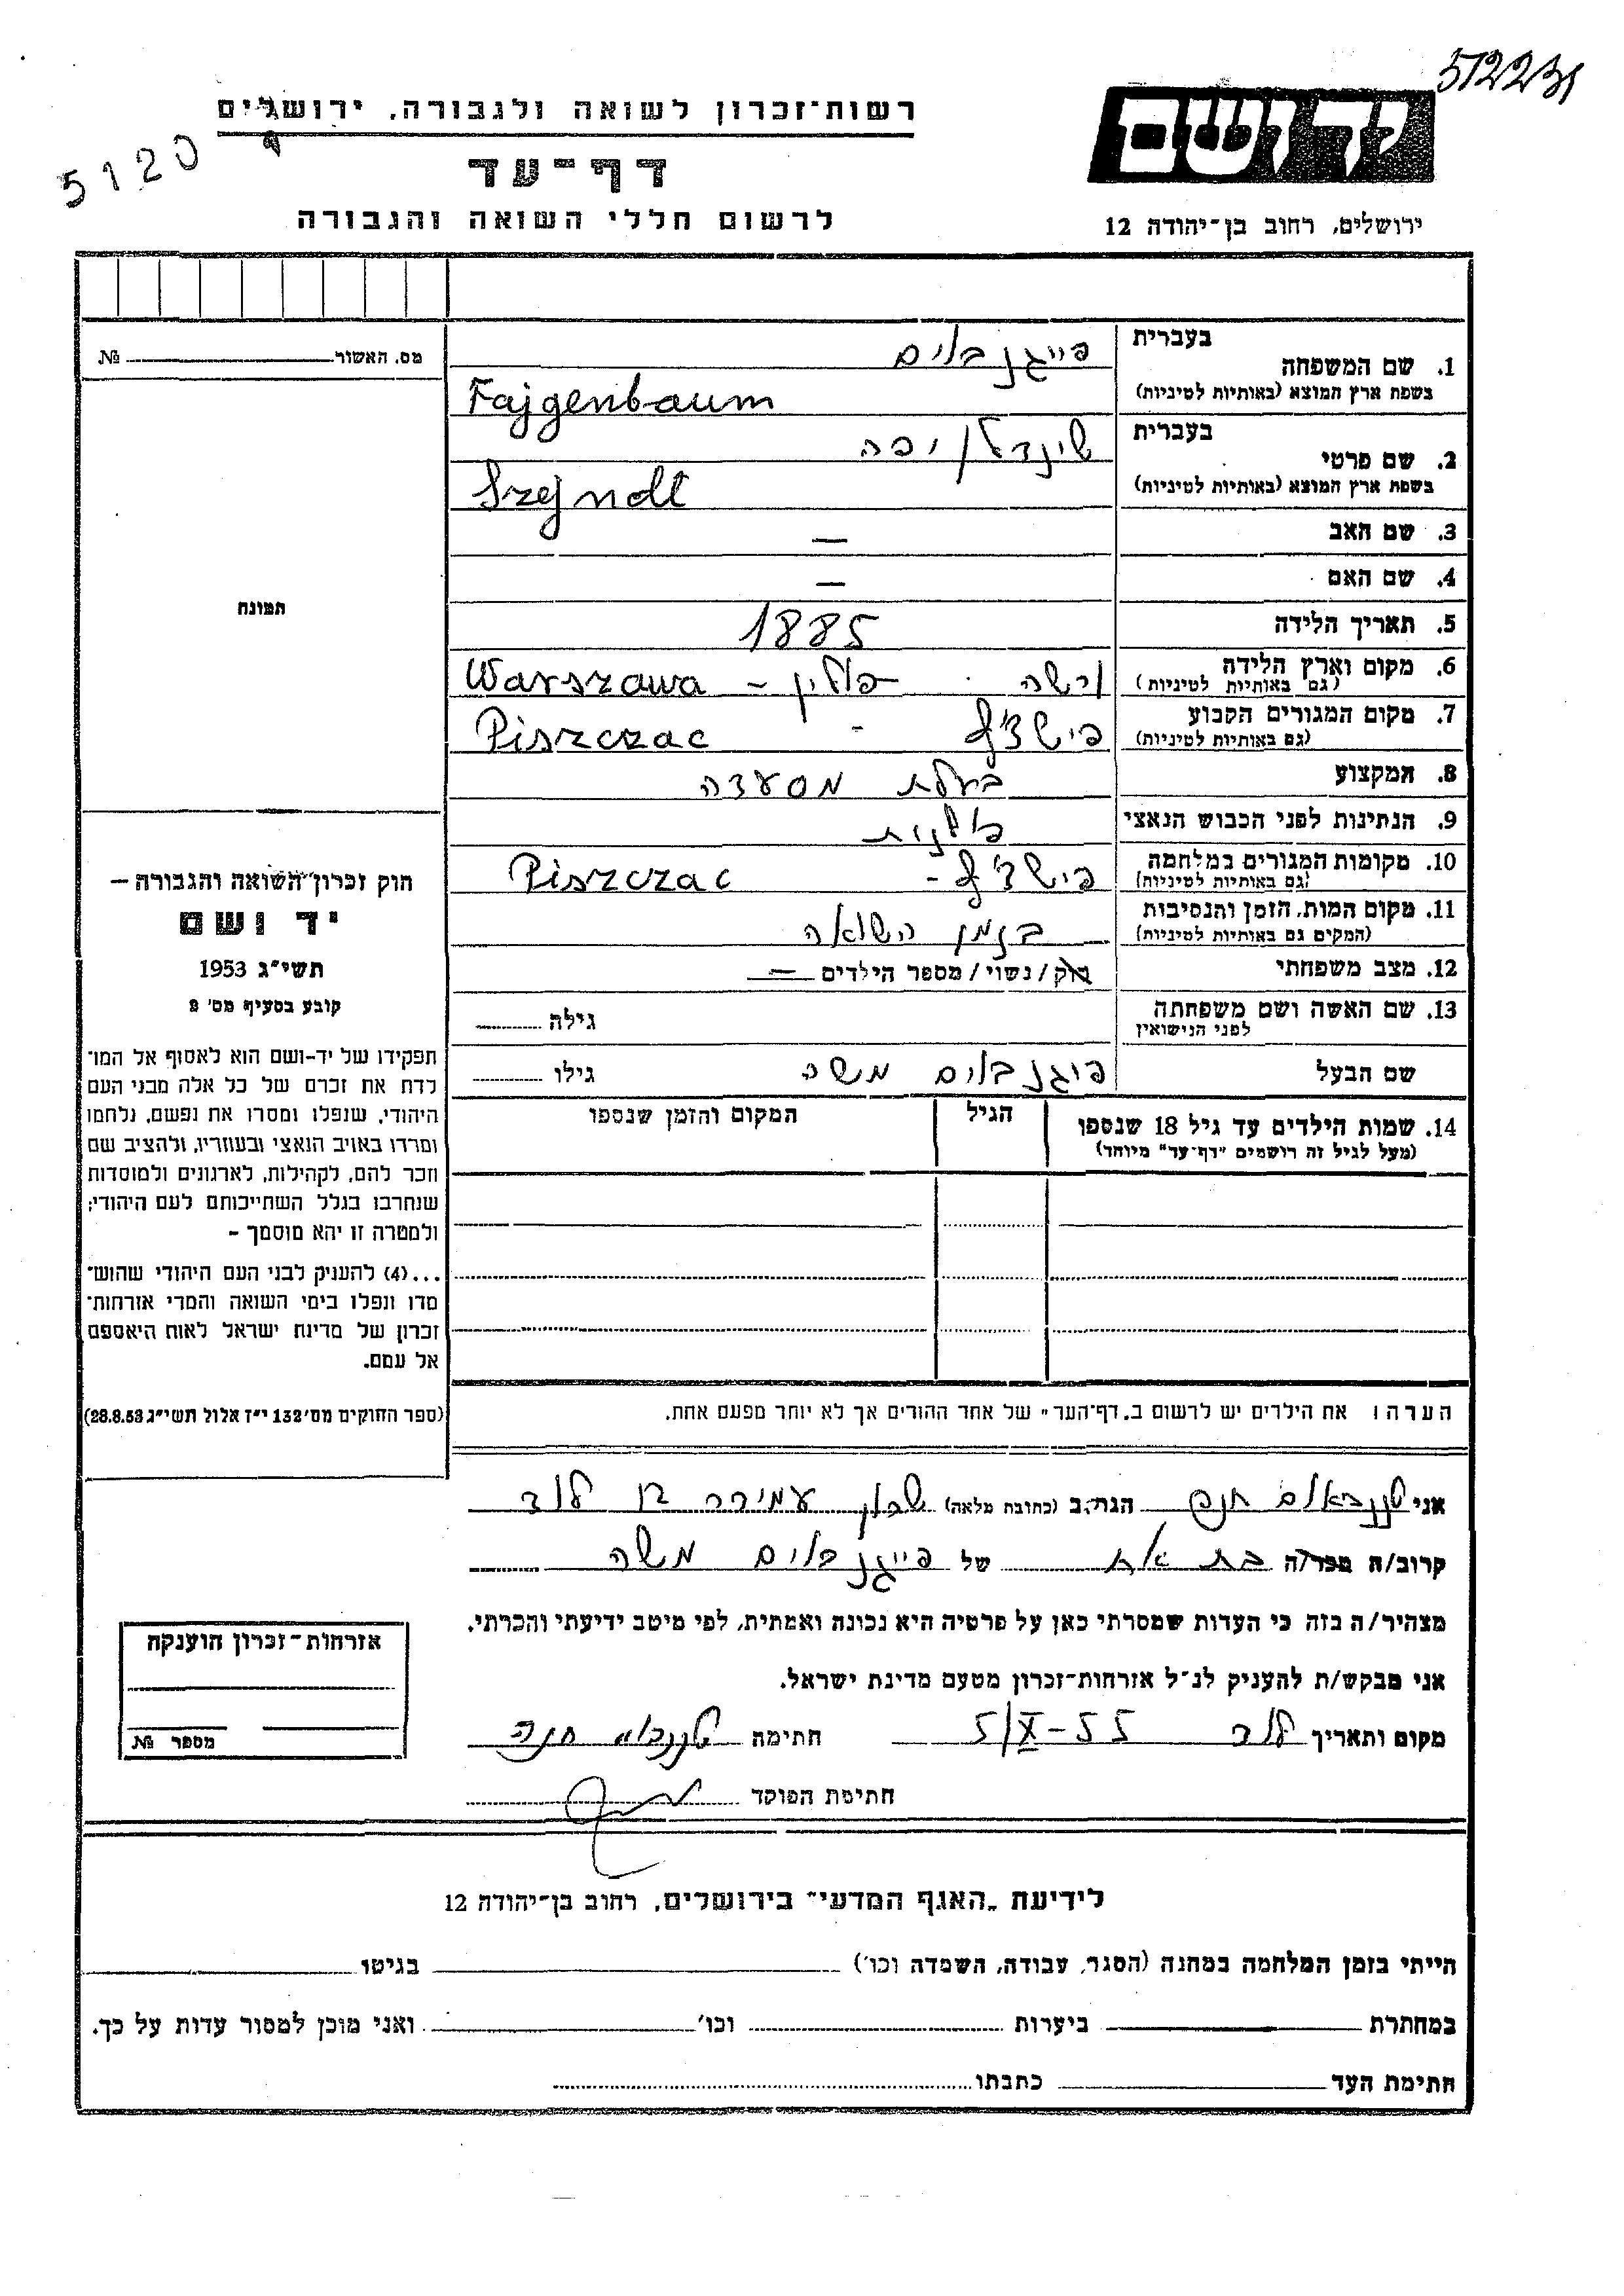 512231
יד ושם
רשות־זכרון לשואה ולגבורה, ירושלים
5120
דף־עד
לרשום חללי השואה והגבורה
ירושלים, רחוב בן־יהודה 12
בעברית
1. שם המשפחה
בשפת ארץ המוצא (באותיות לטיניות)
פייגנבלוים
Fajgenbaum
מס. האשור № 
בעברית
2. שם פרטי
בשפת ארץ המוצא (באותיות לטיניות)
שיינדלן יפה
Szejndl
3. שם האב —
4. שם האם —
תמונה
5. תאריך הלידה 1885
6. מקום וארץ הלידה
(גם באותיות לטיניות)
ורשה פולין – Warszawa
7. מקום המגורים הקבוע
(גם באותיות לטיניות)
פישצ'ץ – Piszczac
8. המקצוע בעלת מסעדה
9. הנתינות לפני הכבוש הנאצי פולנית
10. מקומות המגורים במלחמה
(גם באותיות לטיניות)
פישצ'ץ - Piszczac
11. מקום המות, הזמן והנסיבות
(המקום גם באותיות לטיניות)
בזמן השואה
12. מצב משפחתי רוק/נשוי/מספר הילדים —
13. שם האשה ושם משפחתה
לפני הנישואין
גילה
שם הבעל פיגנבלוים משה גילו
14. שמות הילדים עד גיל 18 שנספו
(מעל לגיל זה רושמים "דף־עד" מיוחד)
הגיל
המקום והזמן שנספו
חוק זכרון־השואה והגבורה –
יד ושם
תשי"ג 1953
קובע בסעיף מס' 2
תפקידו של יד-ושם הוא לאסוף אל המו־
לדת את זכרם של כל אלה מבני העם
היהודי, שנפלו ומסרו את נפשם, נלחמו
ומרדו באויב הנאצי ובעוזריו, ולהציב שם
וזכר להם, לקהילות, לארגונים ולמוסדות
שנחרבו בגלל השתייכותם לעם היהודי;
ולמטרה זו יהא מוסמך –
...(4) להעניק לבני העם היהודי שהוש־
מדו ונפלו בימי השואה והמרי אזרחות־
זכרון של מדינת ישראל לאות היאספם
אל עמם.
(ספר החוקים מס' 132 י"ז אלול תשי"ג 28.8.53)
הערה: את הילדים יש לרשום ב„דף־העד" של אחד ההורים אך לא יותר מפעם אחת.
אני חנה הגר ב (כתובת מלאה) שכון עמידר לוד
קרוב/ה מכר/ה בת אח של פייגנבלוים משה
מצהיר/ה בזה כי העדות שמסרתי כאן על פרטיה היא נכונה ואמתית, לפי מיטב ידיעתי והכרתי.
אני מבקש/ת להעניק לנ"ל אזרחות־זכרון מטעם מדינת ישראל.
מקום ותאריך לוד 5/X-55 חתימה חנה
חתימת הפוקד
אזרחות־זכרון הוענקה
מספר №
לידיעת „האגף המדעי" בירושלים, רחוב בן־יהודה 12
הייתי בזמן המלחמה במחנה (הסגר, עבודה, השמדה וכו') בגיטו
במחתרת ביערות וכו' ואני מוכן למסור עדות על כך.
חתימת העד כתבתו